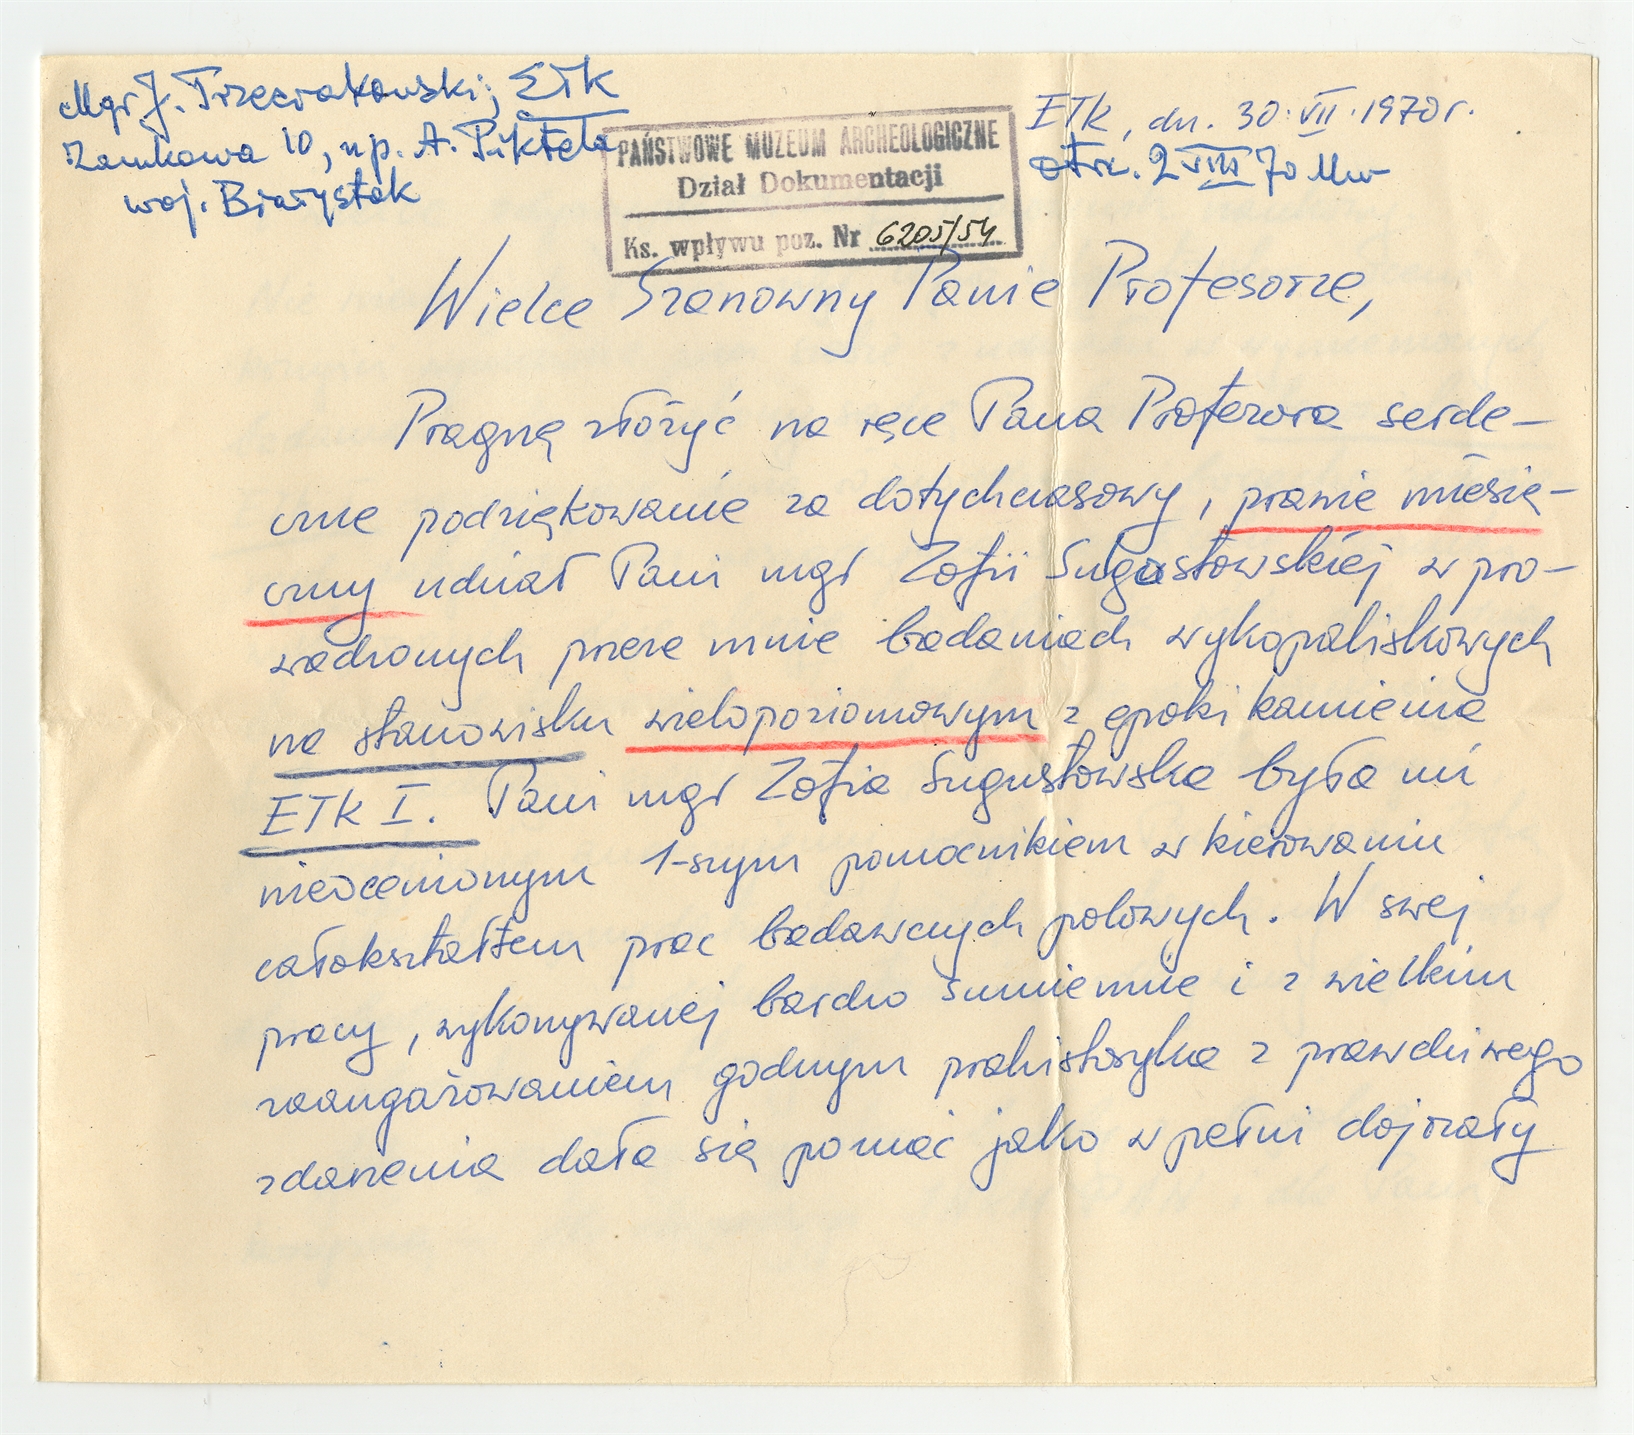 Mgr J. Trzeciakowski; Ełk
Zamkowa 10, u p. A. Pikteła
woj. Białystok
PAŃSTWOWE MUZEUM ARCHEOLOGICZNE
Dział Dokumentacji
Ks. wpływu poz. Nr 6205/54
Ełk, dn. 30.VII.1970 r.
otrz. 2 VIII 70
Wielce Szanowny Panie Profesorze,
Pragnę złożyć na ręce Pana Profesora serde-
czne podziękowanie za dotychczasowy, prawie miesię-
czny udział Pani mgr Zofii Sulgostowskiej w pro-
wadzonych przeze mnie badaniach wykopaliskowych
na stanowisku wielopoziomowym z epoki kamienia
Ełk I. Pani mgr Zofia Sugustowska była mi
nieocenionym 1-szym pomocnikiem w kierowaniu
całokształtem prac badawczych polowych. W swej
pracy, wykonywanej bardzo sumiennie i z wielkim
zaangażowaniem godnym prahistoryka z prawdziwego
zdarzenia dała się poznać jako w pełni dojrzały